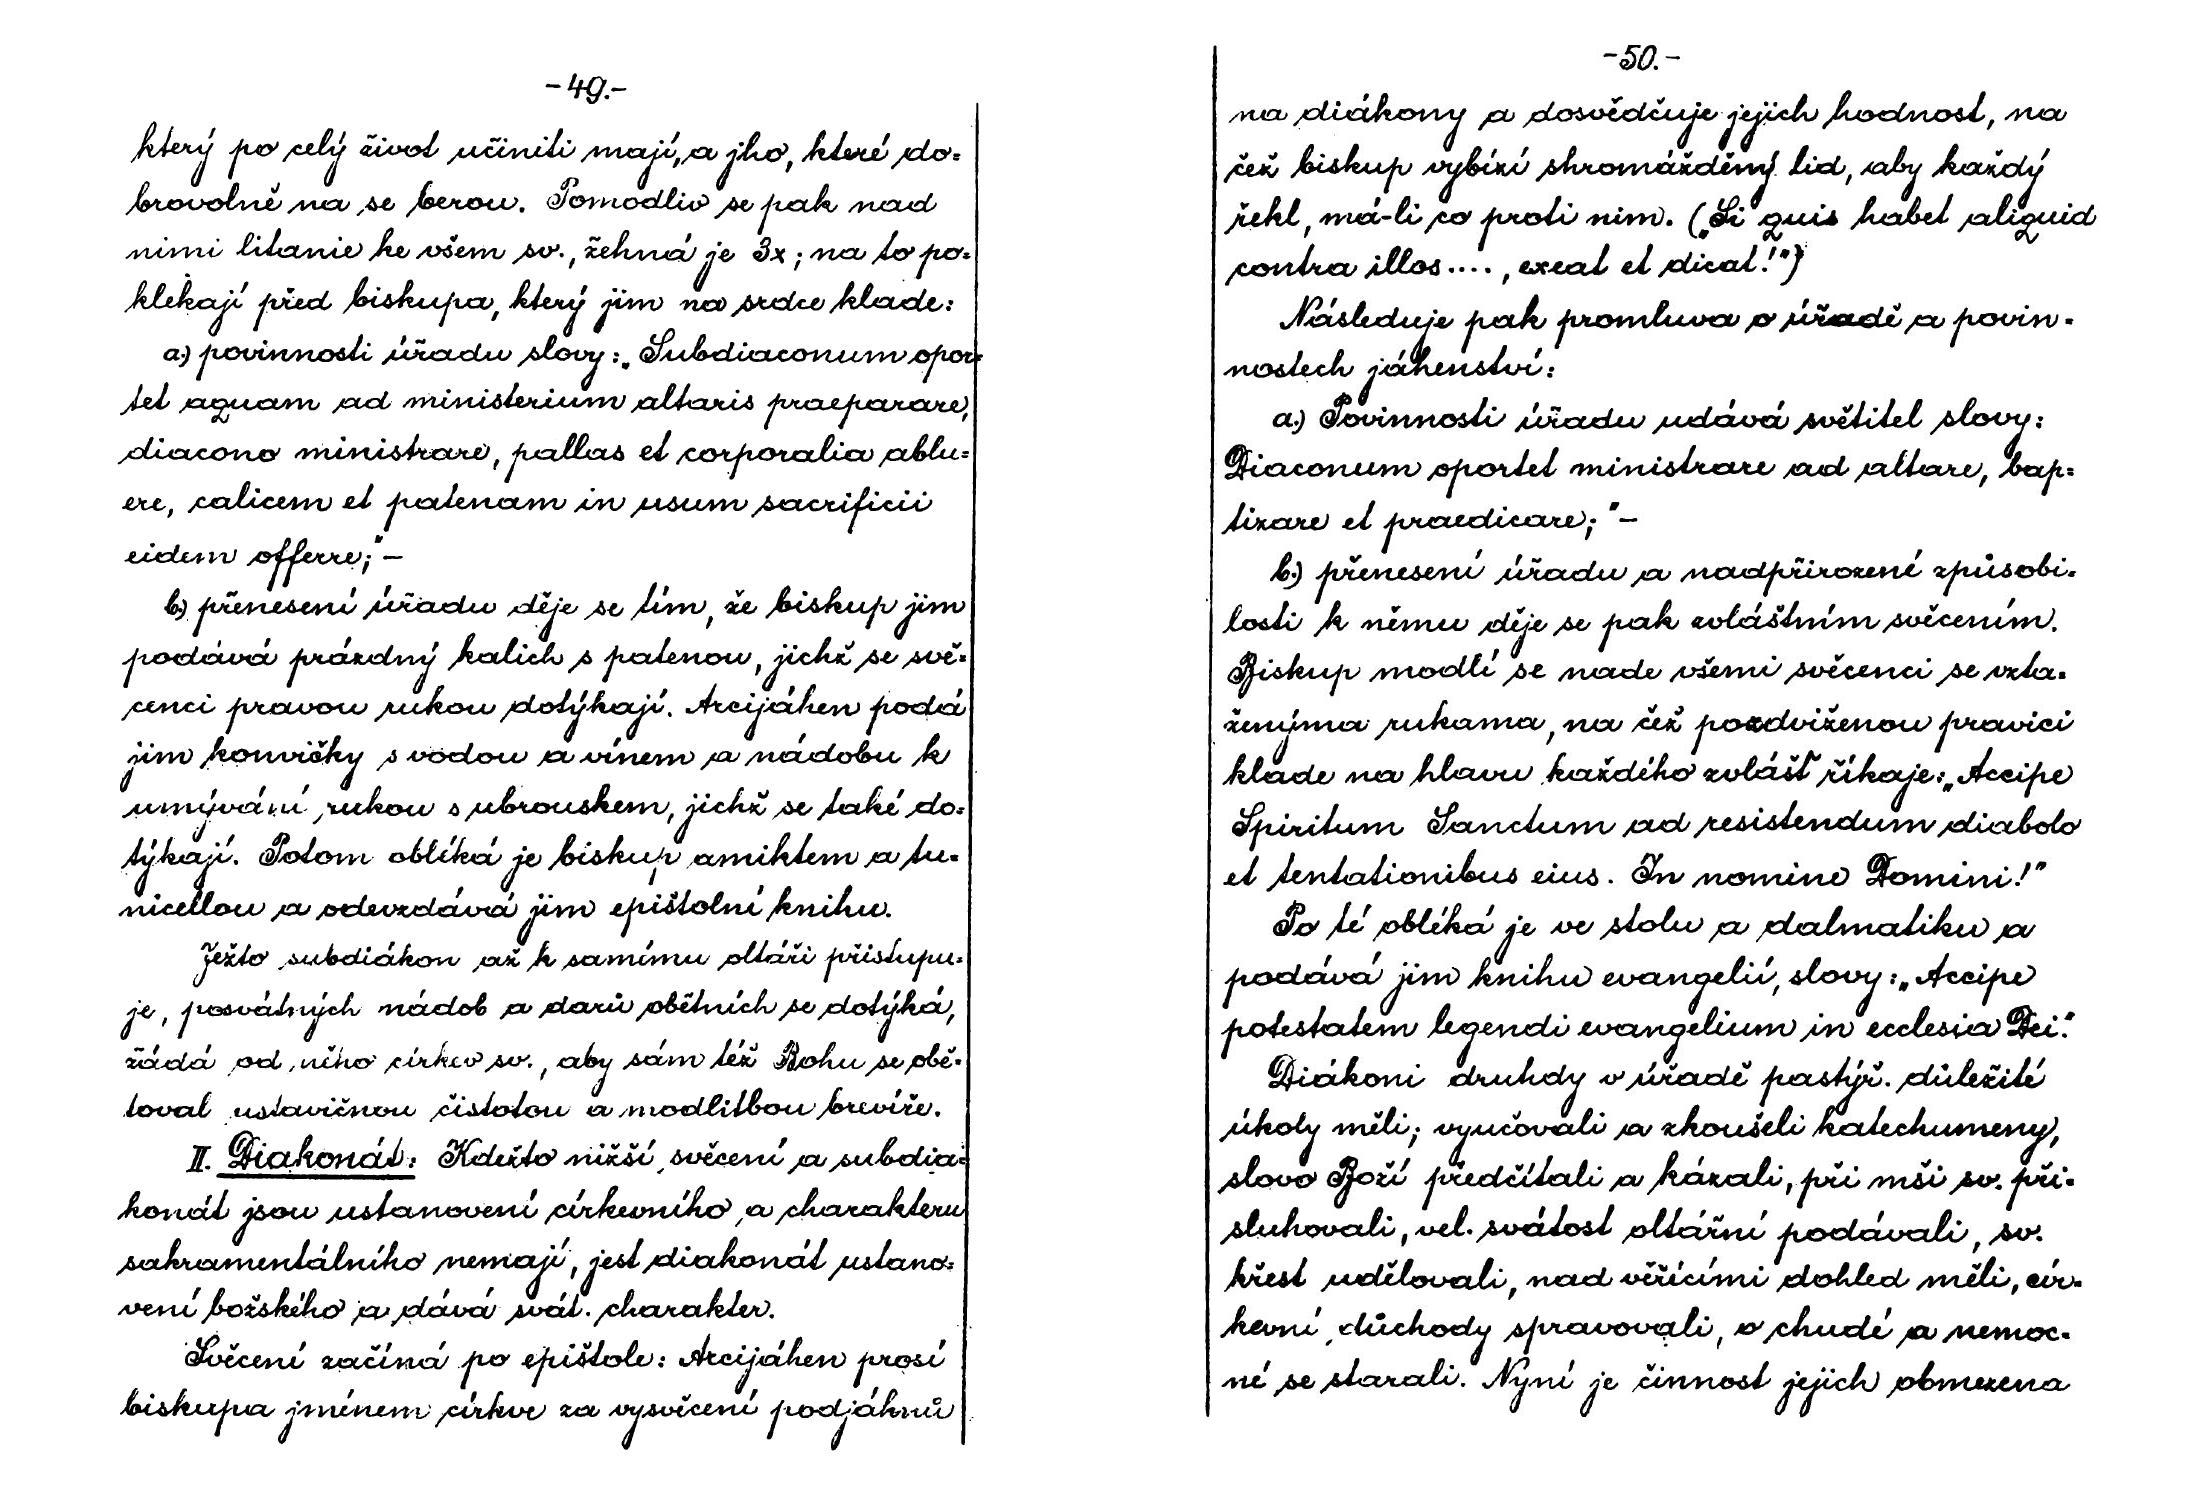 -49.-
který po celý život učiniti mají, a jho, které do=
brovolně na se berou. Pomodliv se pak nad
nimi litanie ke všem sv., žehná je 3x; na to po=
klekají před biskupa, který jim na srdce klade:
a.) povinnosti úřadu slovy: „Subdiaconum opor=
tet aquam ad ministerium altaris praeparare,
diacono ministrare, pallas et corporalia ablu=
ere, calicem et patenam in usum sacrificii
eidem offerre;" –
b.) přenesení úřadu děje se tím, že biskup jim
podává prázdný kalich s patenou, jichž se svě=
cenci pravou rukou dotýkají. Arcijáhen podá
jim konvičky s vodou a vínem a nádobu k
umývání rukou s ubrouskem, jichž se také do=
týkají. Potom obléká je biskup amiktem a tu=
nicellou a odevzdává jim epištolní knihu.
Ježto subdiákon až k samímu oltáři přistupu=
je, posvátných nádob a darů obětních se dotýká,
žádá od něho církev sv., aby sám též Bohu se obě=
toval ustavičnou čistotou a modlitbou brevíře.
II. Diakonát: Kdežto nižší svěcení a subdia=
konát jsou ustanovení církevního a charakteru
sakramentálního nemají, jest diakonát ustano=
vení božského a dává svát. charakter.
Svěcení začíná po epištole: Arcijáhen prosí
biskupa jménem církve za vysvěcení podjáhnů
-50.-
na diákony a dosvědčuje jejich hodnost, na
čež biskup vybízí shromážděný lid, aby každý
řekl, má-li co proti nim. („Si quis habet aliquid
contra illos...., exeat et dicat!")
Následuje pak promluva o úřadě a povin=
nostech jáhenství:
a.) Povinnosti úřadu udává světitel slovy:
Diaconum oportet ministrare ad altare, bap=
tizare et praedicare;" –
b.) přenesení úřadu a nadpřirozené způsobi=
losti k němu děje se pak zvláštním svěcením.
Biskup modlí se nade všemi svěcenci se vzta=
ženýma rukama, na čež pozdviženou pravici
klade na hlavu každého zvlášť říkaje: „Accipe
Spiritum Sanctum ad resistendum diabolo
et tentationibus eius. In nomine Domini!"
Po té obléká je ve stolu a dalmatiku a
podává jim knihu evangelií, slovy: „Accipe
potestatem legendi evangelium in ecclesia Dei."
Diákoni druhdy v úřadě pastýř. důležité
úkoly měli; vyučovali a zkoušeli katechumeny,
slovo Boží předčítali a kázali, při mši sv. při=
sluhovali, vel. svátost oltářní podávali, sv.
křest udělovali, nad věřícími dohled měli, cír=
kevní důchody spravovali, o chudé a nemoc=
né se starali. Nyní je činnost jejich obmezena